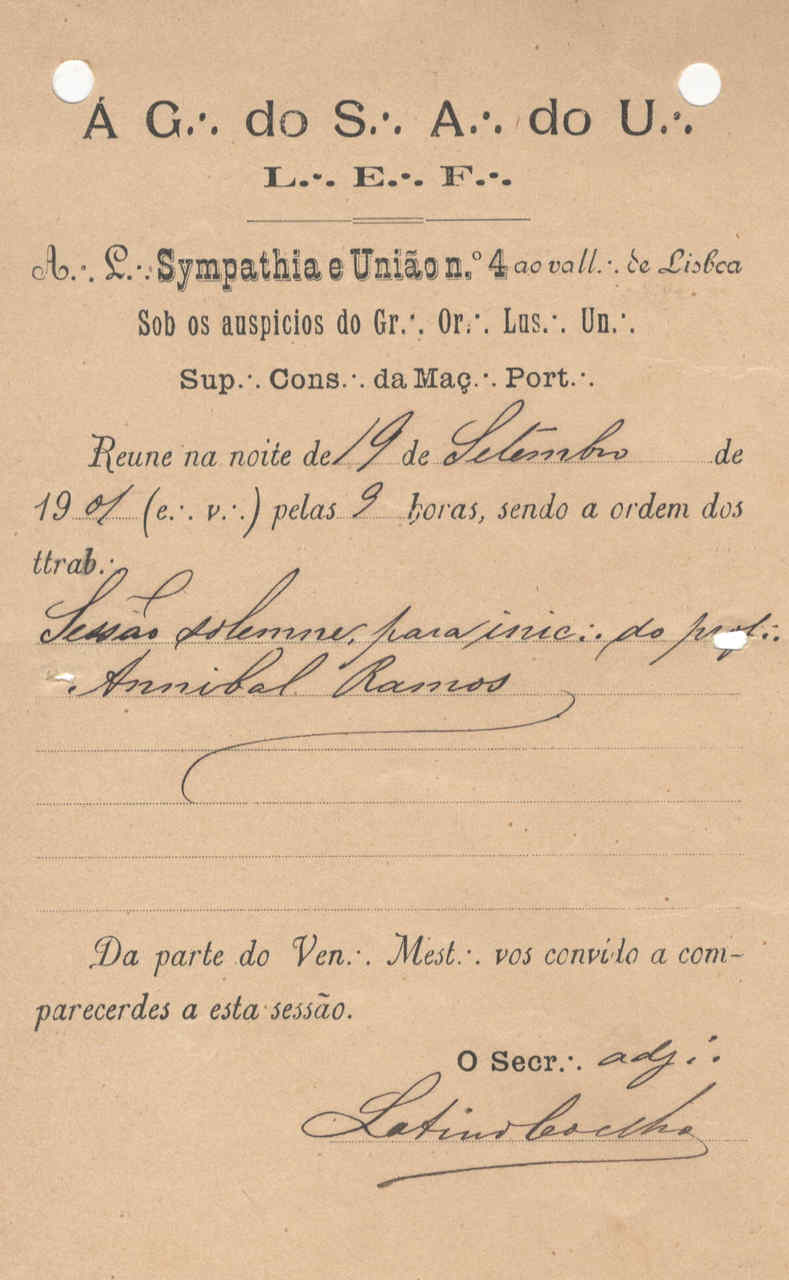 Á G.·. do S.·. A.·. do U.·.
L.·. E.·. F.·.
A.·. L.·. Sympathia e União n.º 4 ao vall.·. de Lisboa
Sob os auspicios do Gr.·. Or.·. Lus.·. Un.·.
Sup.·. Cons.·. da Maç.·. Port.·.
Reune na noite de 19 de Setembro de
1901 (e.·. v.·.) pelas 9 horas, sendo a ordem dos
ttrab.·.
Sessão solemne, para inic.·. do prof.·.
Annibal Ramos
Da parte do Ven.·. Mest.·. vos convido a com-
parecerdes a esta sessão.
O Secr.·. adj.·.
Latino Coelho